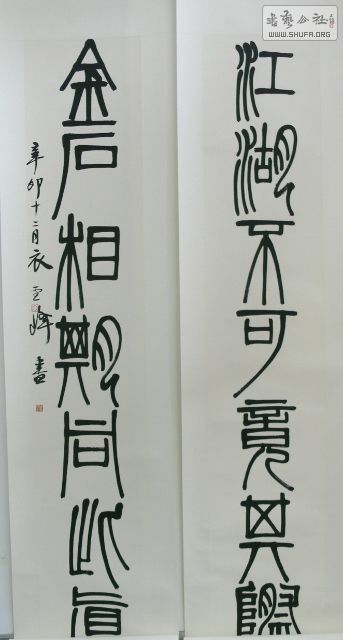 書藝公社
WWW.SHUFA.ORG
江湖不可竟其
金石相期同此
辛卯十二月衣雪峰書